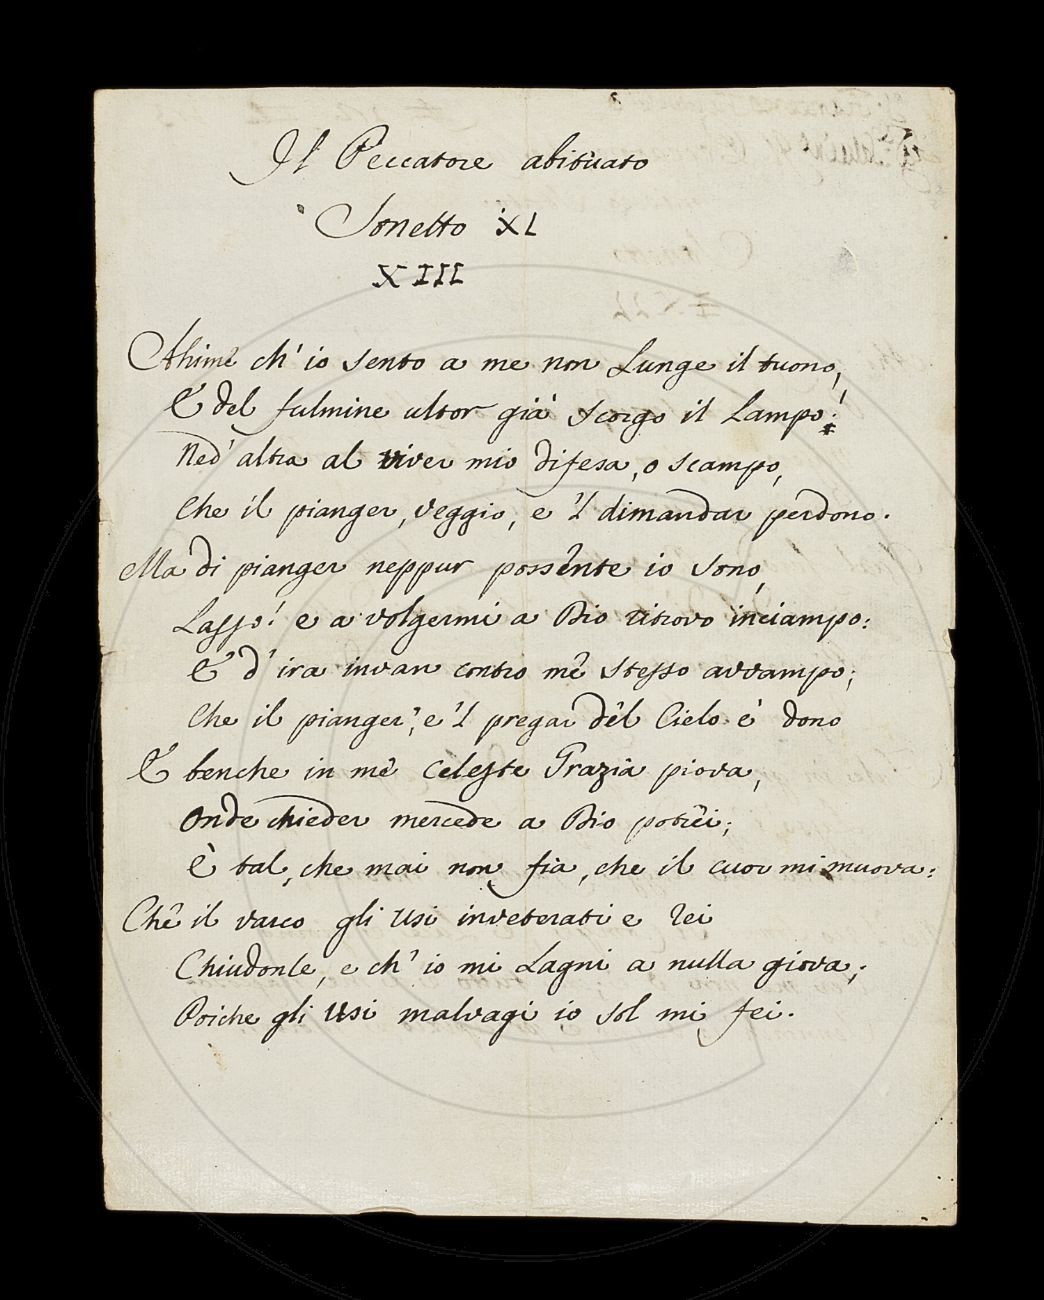 Il Peccatore abituato
Sonetto XL
XIII
Ahimè ch' io sento a me non Lunge il tuono,
E del fulmine ultor già scorgo il Lampo:
Ned' altra al viver mio difesa, o scampo,
Che il pianger, veggio, e 'l dimandar perdono.
Ma di pianger neppur possente io sono,
Lasso! e a volgermi a Dio ritrovo inciampo:
E d' ira invan contro mè stesso avvampo;
Che il pianger, e 'l pregar dèl Cielo è dono
E benche in mè Celeste Grazia piova,
Onde chieder mercede a Dio potrèi;
È tal, che mai non fia, che il cuor mi muova:
Chè il varco gli usi inveterati e rei
Chiudonle, e ch' io mi Lagni a nulla giova;
Poiche gli usi malvagi io sol mi fei.